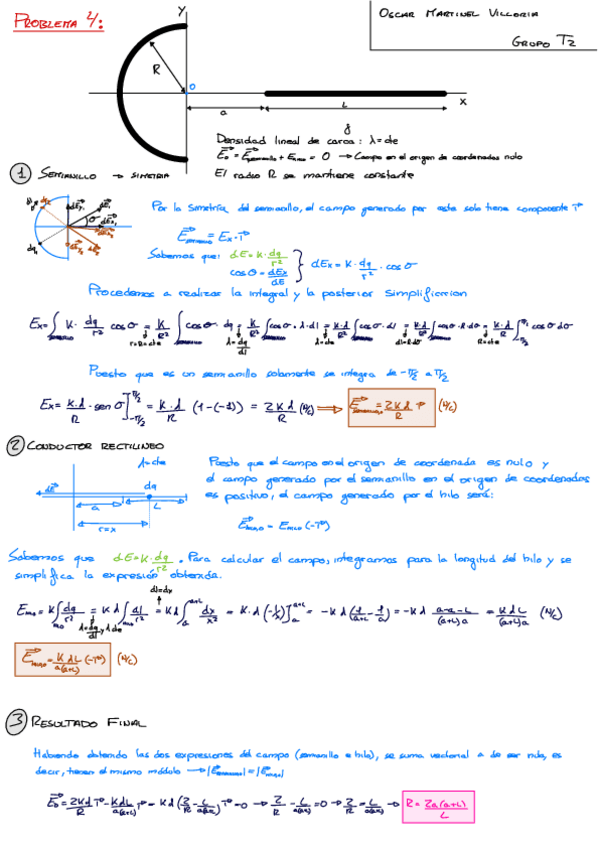 PROBLEMA 4:
OSCAR MARTINEZ VILLORIA
GRUPO T2
Y
R
O
a
L
X
Densidad lineal de carga: λ=cte
E⃗₀ = E⃗semianillo + E⃗hilo = 0 → Campo en el origen de coordenadas nulo
El radio R se mantiene constante
① SEMIANILLO → SIMETRIA
Por la simetría del semianillo, el campo generado por este solo tiene componente i⃗
E⃗semianillo = Ex · i⃗
Sabemos que: dE = K · dq/r²
cos θ = dEx/dE
dEx = K · dq/r² · cos θ
Procedemos a realizar la integral y la posterior simplificacion
Ex = ∫ K · dq/r² cos θ = K/R² ∫ cos θ dq = K/R² ∫ cos θ · λ · dl = K·λ/R² ∫ cos θ · dl = K·λ/R² ∫ cos θ · R · dθ = K·λ/R ∫ cos θ dθ
r=R=cte
λ = dq/dl
λ=cte
dl=R·dθ
R=cte
Puesto que es un semianillo solamente se integra de -π/2 a π/2
Ex = K·λ/R · sen θ ]-π/2 π/2 = K·λ/R (1-(-1)) = 2Kλ/R (N/C) ⇒ E⃗semianillo = 2Kλ/R i⃗ (N/C)
② CONDUCTOR RECTILINEO
λ=cte
dE⃗
dq
a
L
r=x
Puesto que el campo en el origen de coordenada es nulo y
el campo generado por el semianillo en el origen de coordenadas
es positivo, el campo generado por el hilo será:
E⃗hilo = Ehilo (-i⃗)
Sabemos que dE = K · dq/r². Para calcular el campo, integramos para la longitud del hilo y se
simplifica la expresión obtenida.
dl=dx
Ehilo = K ∫hilo dq/r² = Kλ ∫hilo dl/r² = Kλ ∫a a+L dx/x² = K·λ (-1/x)]a a+L = -Kλ (1/(a+L) - 1/a) = -Kλ (a-a-L)/((a+L)a) = KλL/((a+L)a) (N/C)
λ = dq/dl y λ cte
E⃗hilo = KλL/(a(a+L)) (-i⃗) (N/C)
③ RESULTADO FINAL
Habiendo obtenido las dos expresiones del campo (semianillo e hilo), se suma vectorial a de ser nula, es
decir, tienen el mismo módulo → |E⃗semianillo| = |E⃗hilo|
E⃗₀ = 2Kλ/R i⃗ - KλL/(a(a+L)) i⃗ = Kλ (2/R - L/(a(a+L))) i⃗ = 0 → 2/R - L/(a(a+L)) = 0 → 2/R = L/(a(a+L)) → R = 2a(a+L)/L